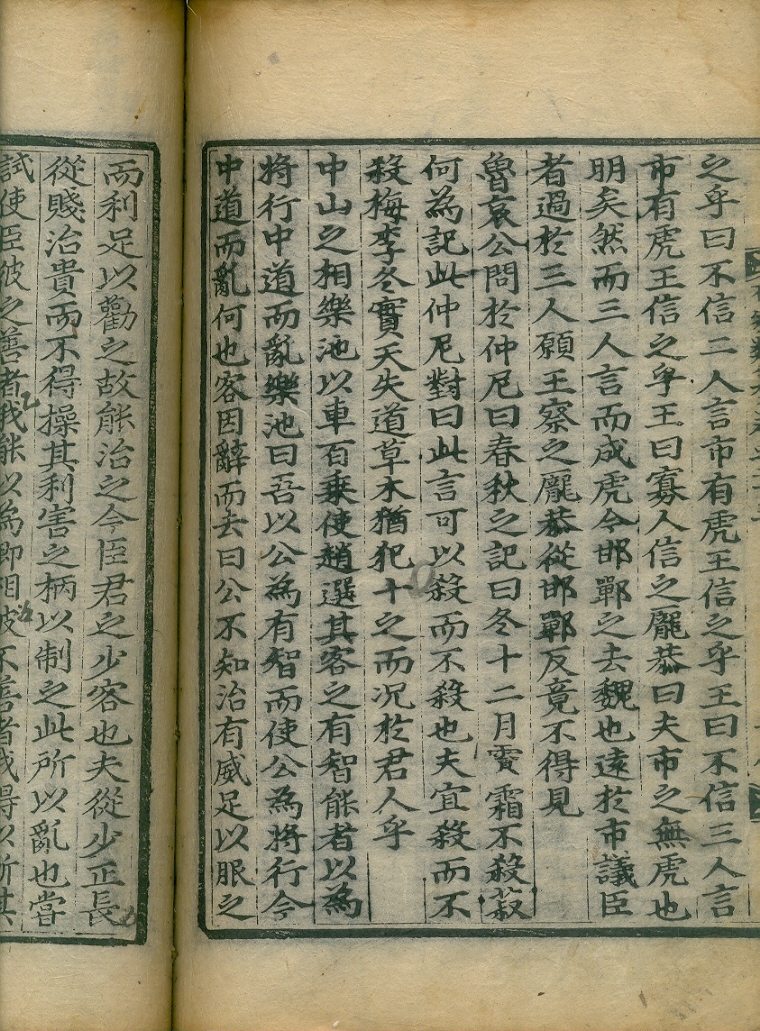 之乎曰不信二人言市有虎王信之乎王曰不信三人言
市有虎王信之乎王曰寡人信之龐恭曰夫市之無虎也
明矣然而三人言而成虎今邯鄲之去魏也遠於市議臣
者過於三人願王察之龐恭從邯鄲反竟不得見
魯哀公問於仲尼曰春秋之記曰冬十二月霣霜不殺菽
何為記此仲尼對曰此言可以殺而不殺也夫宜殺而不
殺梅李冬實天失道草木猶犯干之而况於君人乎
中山之相樂池以車百乗使趙選其客之有智能者以為
將行中道而亂樂池曰吾以公為有智而使公為將行今
中道而亂何也客因辭而去曰公不知治有威足以服之
而利足以勸之故能治之今臣君之少客也夫從少正長
從賤治貴而不得操其利害之柄以制之此所以亂也嘗
試使臣彼之善者我能以為卿相彼不善者我得以斬其